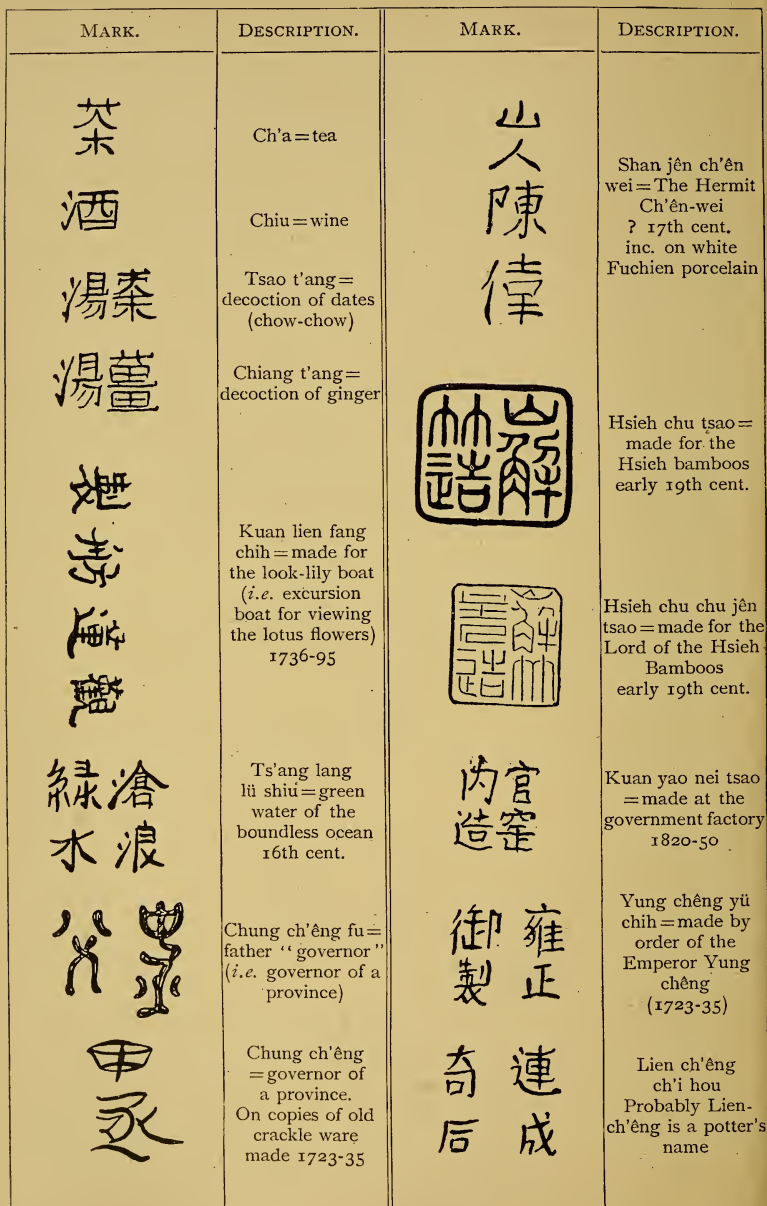 MARK.
DESCRIPTION.
MARK.
DESCRIPTION.
茶
Ch'a=tea
酒
Chiu=wine
湯棗
Tsao t'ang=
decoction of dates
(chow-chow)
湯薑
Chiang t'ang=
decoction of ginger
製
舫
蓮
觀
Kuan lien fang
chih=made for
the look-lily boat
(i.e. excursion
boat for viewing
the lotus flowers)
1736-95
緑滄
水浪
Ts'ang lang
lü shiu=green
water of the
boundless ocean
16th cent.
Chung ch'êng fu=
father "governor"
(i.e. governor of a
province)
中
丞
Chung ch'êng
=governor of
a province.
On copies of old
crackle ware
made 1723-35
山
人
陳
偉
Shan jên ch'ên
wei=The Hermit
Ch'ên-wei
? 17th cent.
inc. on white
Fuchien porcelain
Hsieh chu tsao=
made for the
Hsieh bamboos
early 19th cent.
Hsieh chu chu jên
tsao=made for the
Lord of the Hsieh
Bamboos
early 19th cent.
内官
造窑
Kuan yao nei tsao
=made at the
government factory
1820-50
御雍
製正
Yung chêng yü
chih=made by
order of the
Emperor Yung
chêng
(1723-35)
奇連
后成
Lien ch'êng
ch'i hou
Probably Lien-
ch'êng is a potter's
name